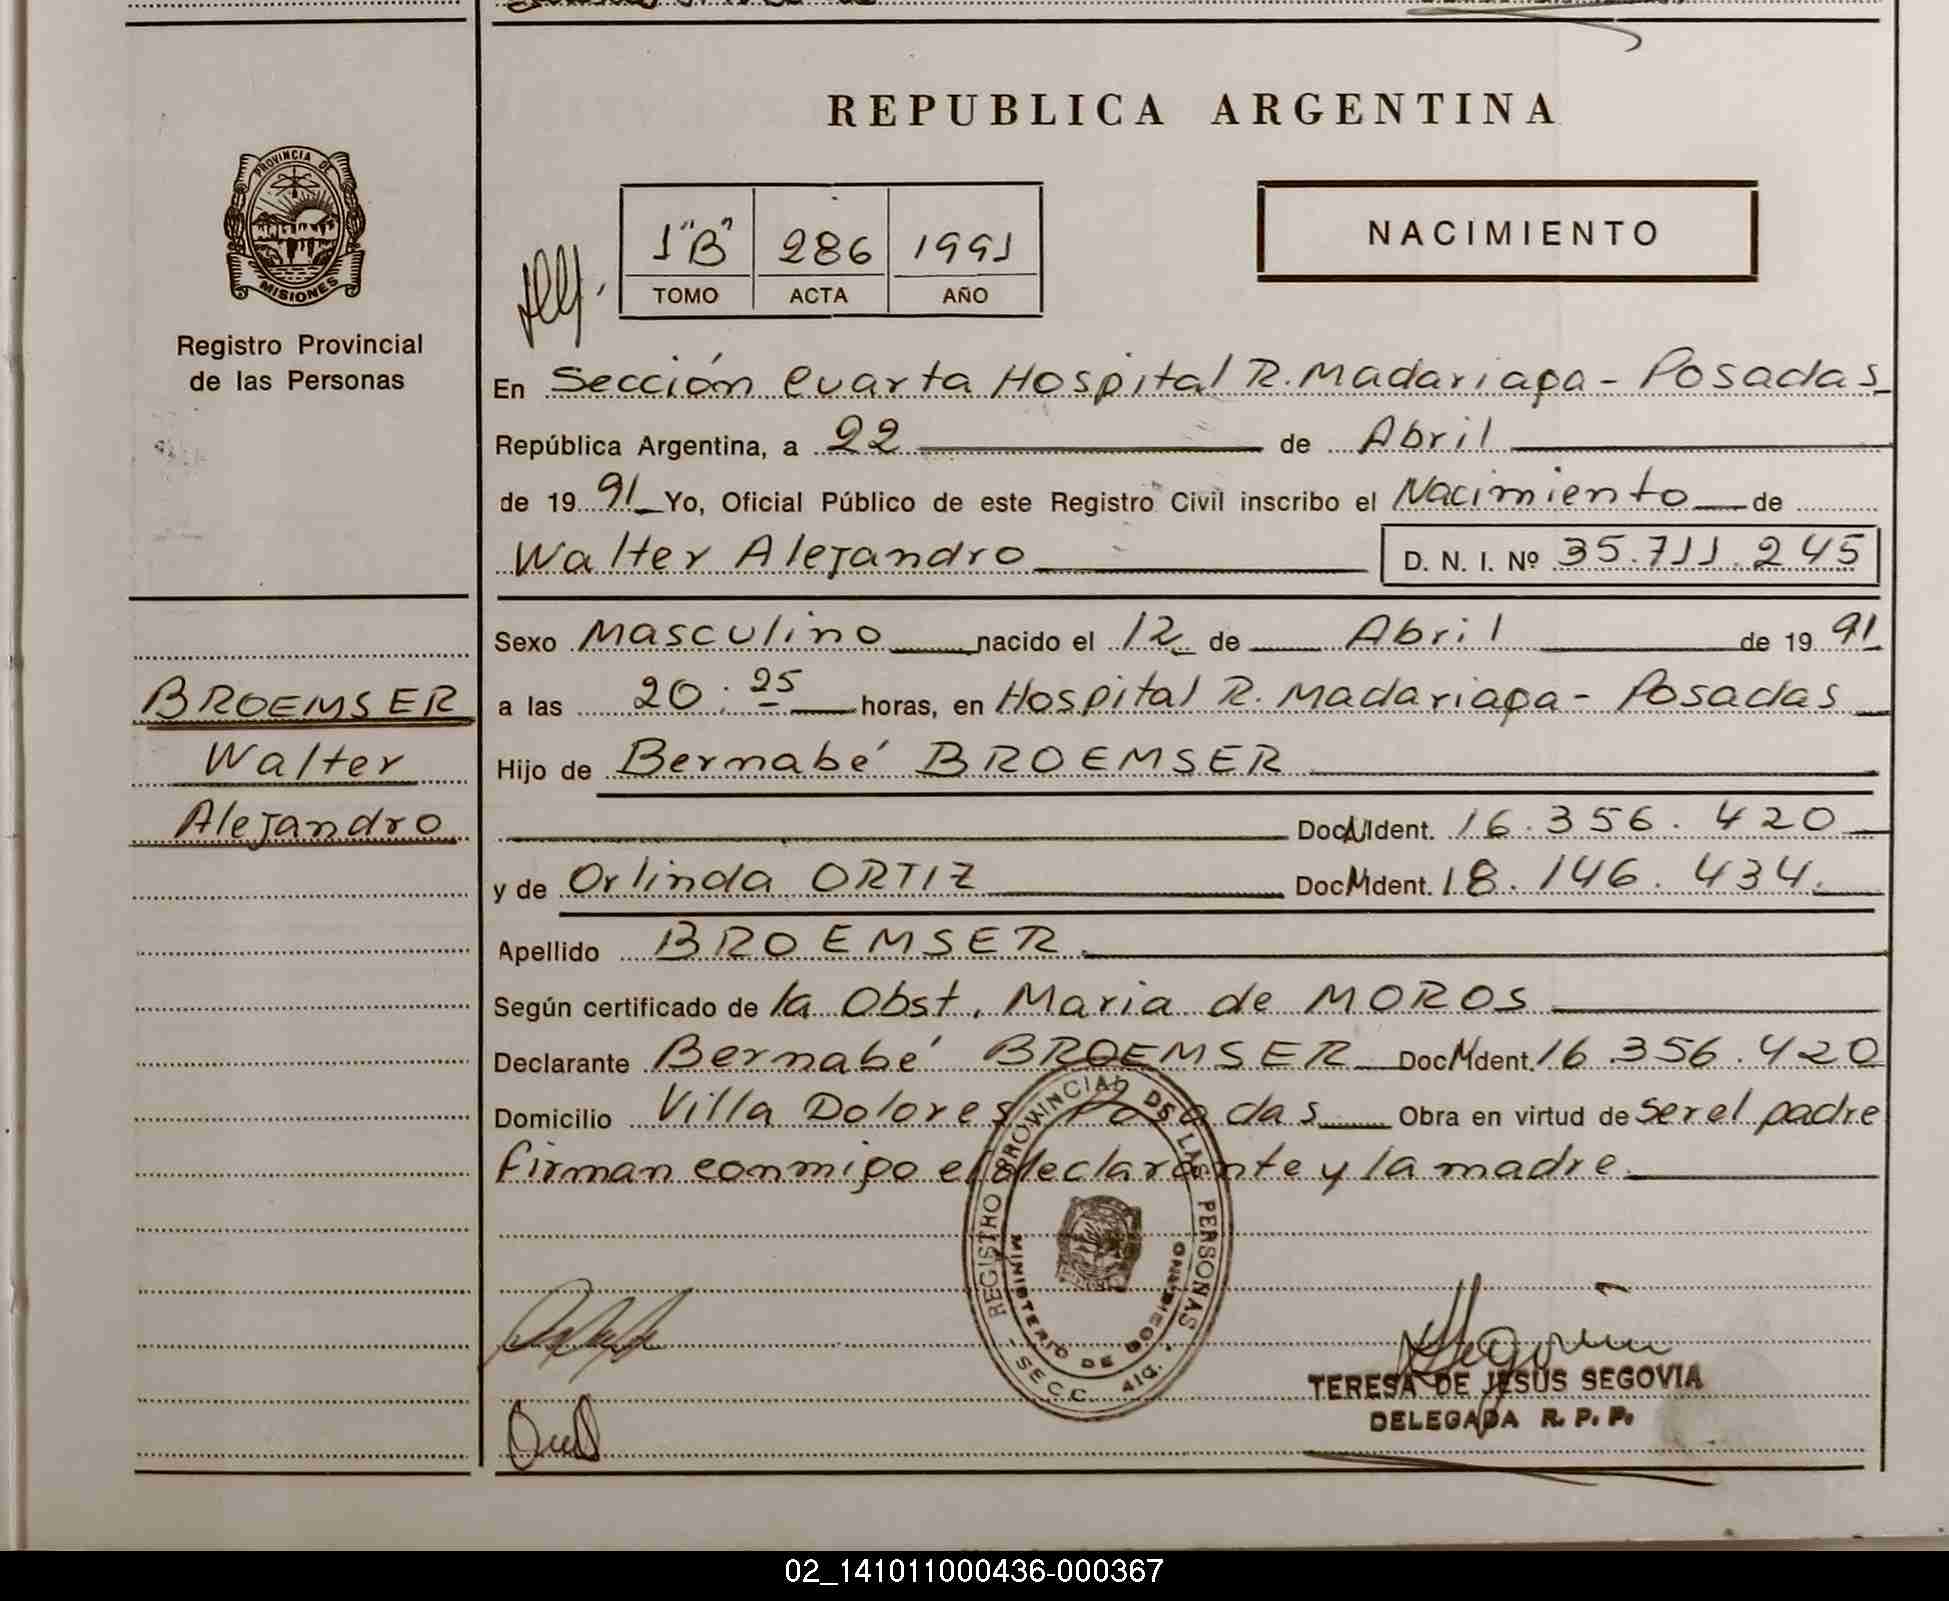 REPUBLICA ARGENTINA
PROVINCIA DE
MISIONES
Registro Provincial
de las Personas
1 "B" 286 1991
TOMO ACTA AÑO
NACIMIENTO
En Sección Cuarta Hospital R. Madariaga - Posadas
República Argentina, a 22 de Abril
de 19 91 Yo, Oficial Público de este Registro Civil inscribo el Nacimiento de
Walter Alejandro D. N. I. Nº 35.711.245
Sexo Masculino nacido el 12 de Abril de 19 91
a las 20:25 horas, en Hospital R. Madariaga - Posadas
Hijo de Bernabé BROEMSER
Doc. Ident. 16.356.420
y de Orlinda ORTIZ Doc. Ident. 18.146.434.
Apellido BROEMSER.
Según certificado de la Obst. Maria de MOROS
Declarante Bernabé BROEMSER Doc. Ident. 16.356.420
Domicilio Villa Dolores Posadas Obra en virtud de ser el padre
firman conmigo el declarante y la madre.
BROEMSER
Walter
Alejandro
REGISTRO PROVINCIAL DE LAS PERSONAS
MINISTERIO DE GOBIERNO
- SECC. 4ta. -
Segovia
TERESA DE JESUS SEGOVIA
DELEGADA R. P. P.
02_141011000436-000367